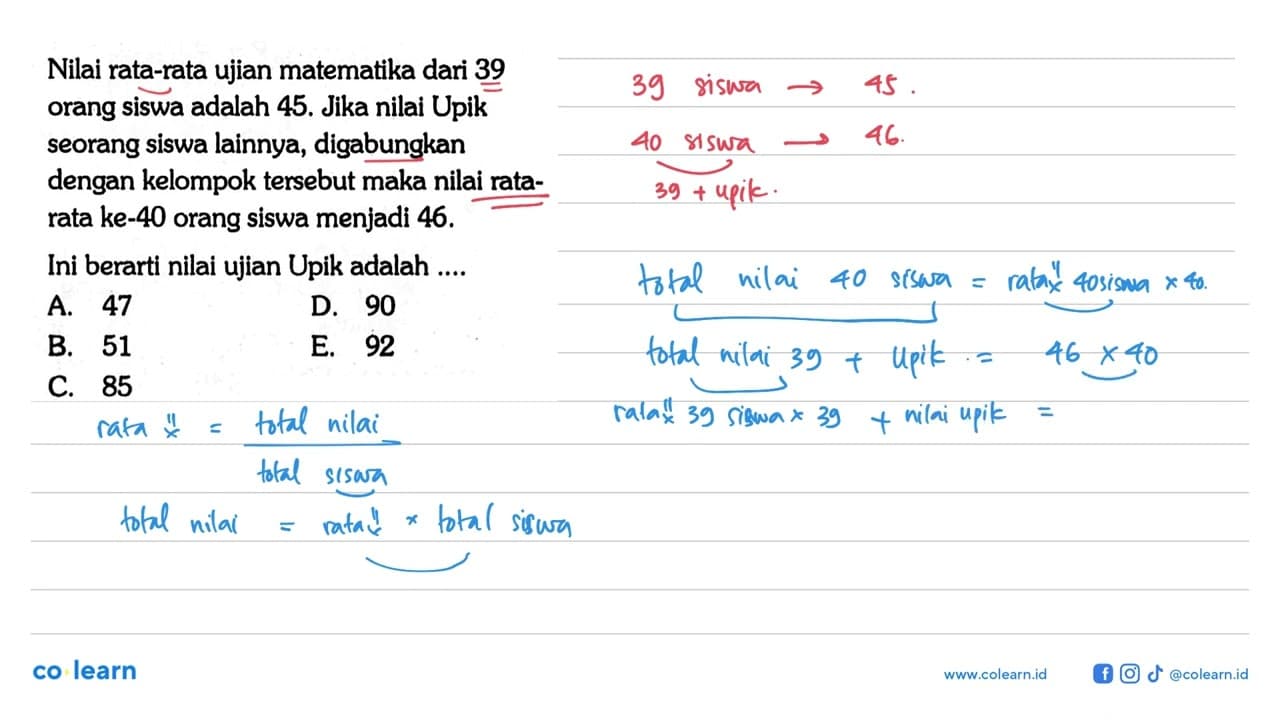 Nilai rata-rata ujian matematika dari 39
orang siswa adalah 45. Jika nilai Upik
seorang siswa lainnya, digabungkan
dengan kelompok tersebut maka nilai rata-
rata ke-40 orang siswa menjadi 46.
Ini berarti nilai ujian Upik adalah ....
A. 47
D. 90
B. 51
E. 92
C. 85
rata" x = total nilai
total siswa
total nilai = rata" x × total siswa
39 siswa → 45.
40 siswa → 46.
39 + upik.
total nilai 40 siswa = rata" x 40 siswa × 40.
total nilai 39 + Upik = 46 × 40
rata" x 39 siswa × 39 + nilai upik =
co learn
www.colearn.id
@colearn.id